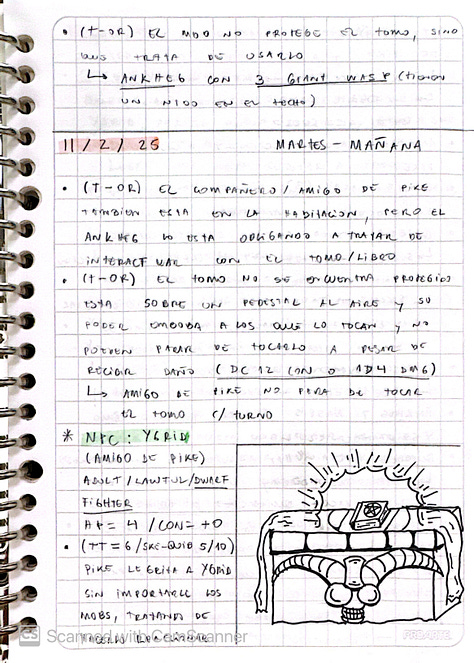 • (T-OR) EL MDO NO PROTEGE EL TOMO, SINO
QUE TRATA DE USARLO
↳ ANKHEG CON 3 GIANT WASP (TIENEN
UN NIDO EN EL TECHO)
11/2/25 MARTES - MAÑANA
• (T-OR) EL COMPAÑERO/AMIGO DE PIKE
TAMBIEN ESTA EN LA HABITACION, PERO EL
ANKHEG LO ESTA OBLIGANDO A TRATAR DE
INTERACTUAR CON EL TOMO/LIBRO
• (T-OR) EL TOMO NO SE ENCUENTRA PROTEGIDO
ESTA SOBRE UN PEDESTAL AL AIRE Y SU
PODER EMBOBA A LOS QUE LO TOCAN Y NO
PUEDEN PARAR DE TOCARLO A PESAR DE
RECIBIR DAÑO (DC 12 CON O 1D4 DMG)
↳ AMIGO DE PIKE NO PARA DE TOCAR
EL TOMO C/ TURNO
* NPC: YGRID
(AMIGO DE PIKE)
ADULT/LAWFUL/DWARF
FIGHTER
HP= 4 / CON= +0
• (TT=6/SKE-QUIB 5/10)
PIKE LE GRITA A YGRID
SIN IMPORTARLE LOS
MOBS, TRATANDO DE
HACERLO
CS Scanned with CamScanner